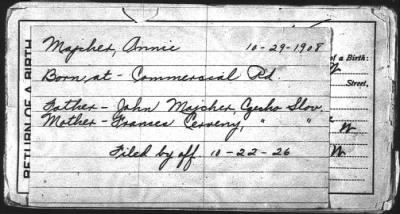 Majcher, Annie 10-29-1908
Born at - Commercial Rd.
Father - John Majcher, Czecho Slov.
Mother - Frances Cerveny, " "
Filed by aff. 10-22-26
RETURN OF A BIRTH
of a Birth:
Street,